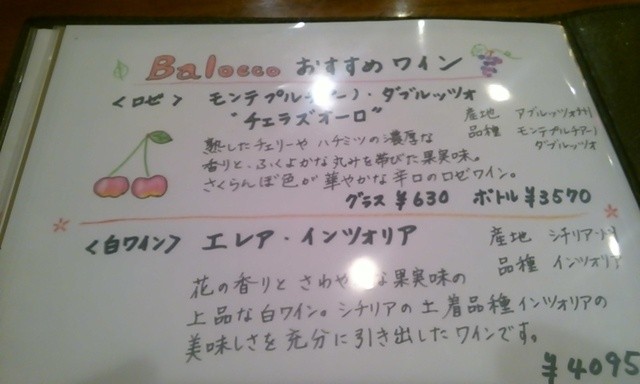 Balocco おすすめワイン
〈ロゼ〉 モンテプルチアーノ・ダブルッツォ
"チェラズオーロ"
産地 アブルッツォ州
品種 モンテプルチアーノ
ダブルッツォ
熟したチェリーや ハチミツの濃厚な
香りと、ふくよかな丸みを帯びた果実味。
さくらんぼ色が華やかな辛口のロゼワイン。
グラス ¥630 ボトル ¥3570
〈白ワイン〉 エレア・インツォリア
産地 シチリア州
品種 インツォリア
花の香りと さわやかな果実味の
上品な白ワイン。シチリアの土着品種インツォリアの
美味しさを充分に引き出したワインです。
¥4095